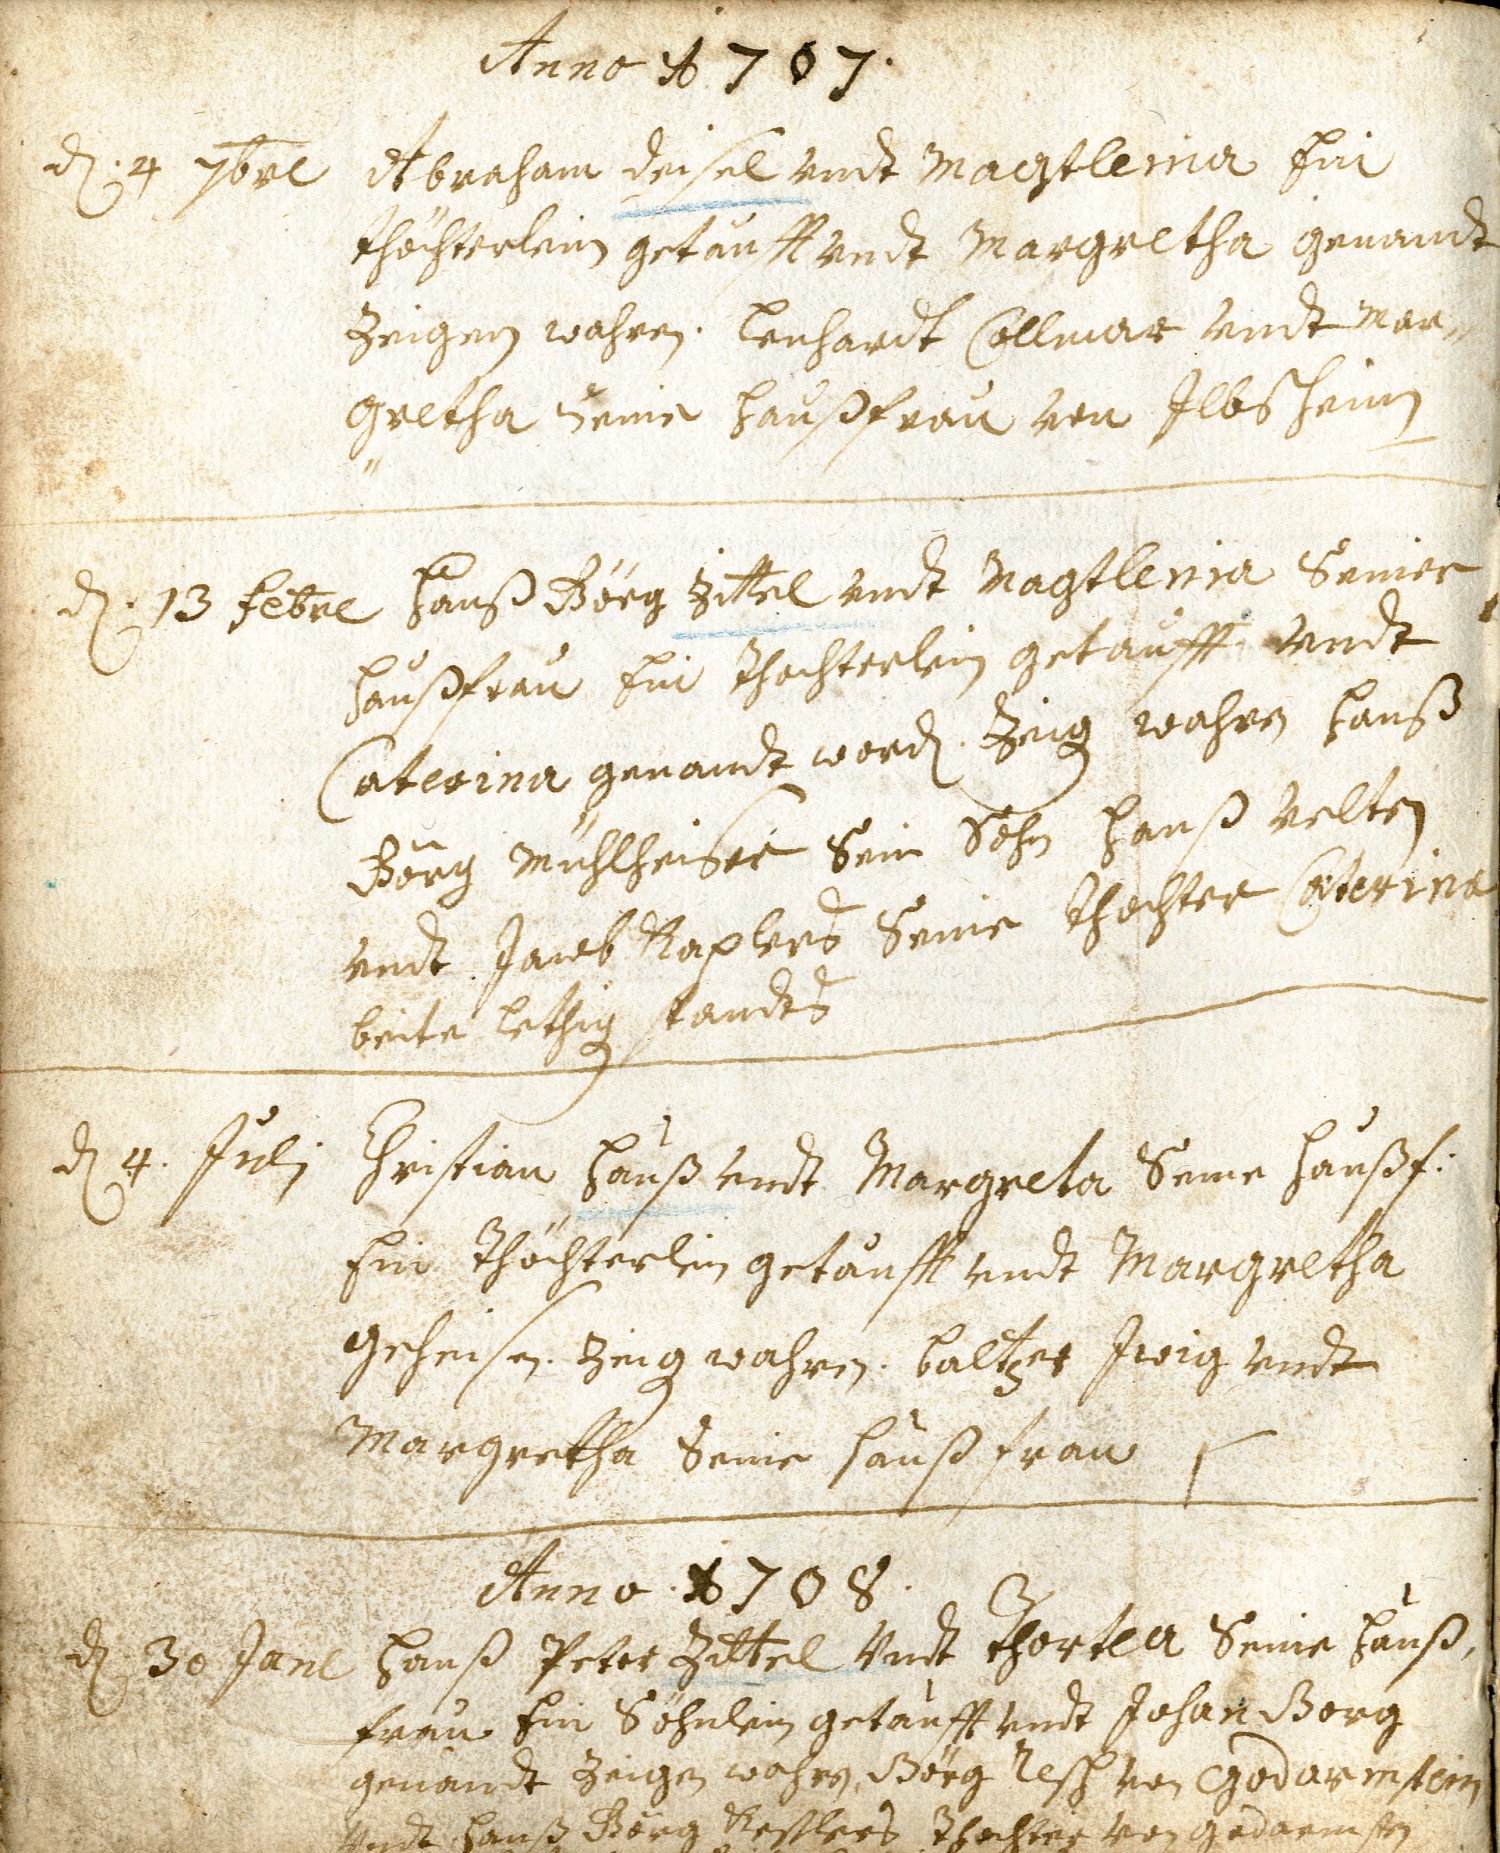 Anno 1707.
d. 4 7bre Abraham Deisel undt Magtlenia Ein
thöchterlein getaufft undt Margretha genandt
Zeigen wahren. Lenhardt Collmar undt Mar„
„gretha seine haußfrau von Ilbsheim
d. 13 febre hanß Görg Zittel undt Magtlenia Seine
haußfrau Ein thochterlein getaufft undt
Caterina genandt word. Zeig wahren hanß
Görg Mühlheiser Sein Sohn hanß velten
undt Jacob Kaplers Seine thochter Caterina
beite lethig standts
d 4. Julj Christian hauß undt Margreta Seine haußf:
Ein thöchterlein getaufft undt Margretha
geheisen. Zeig wahren. baltzer Irig undt
Margretha Seine haußfrau
Anno 1708.
d 30 Jane hanß Peter Zittel undt Thortea Seine hauß,
frau Ein Söhnlein getaufft undt Johan Gorg
genandt Zeigen wahren, Görg von Godarmstein
undt hanß Görg Keßlers thochter von godarmstn